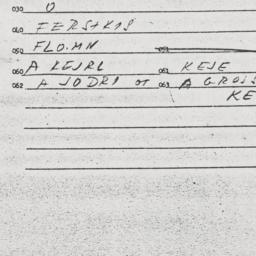 030 O
040 FERSTKIS
050 FLO.MN 051
060 A KEJRL 061 KEJE
062 A JODRI OT 063 A GROSS
KE